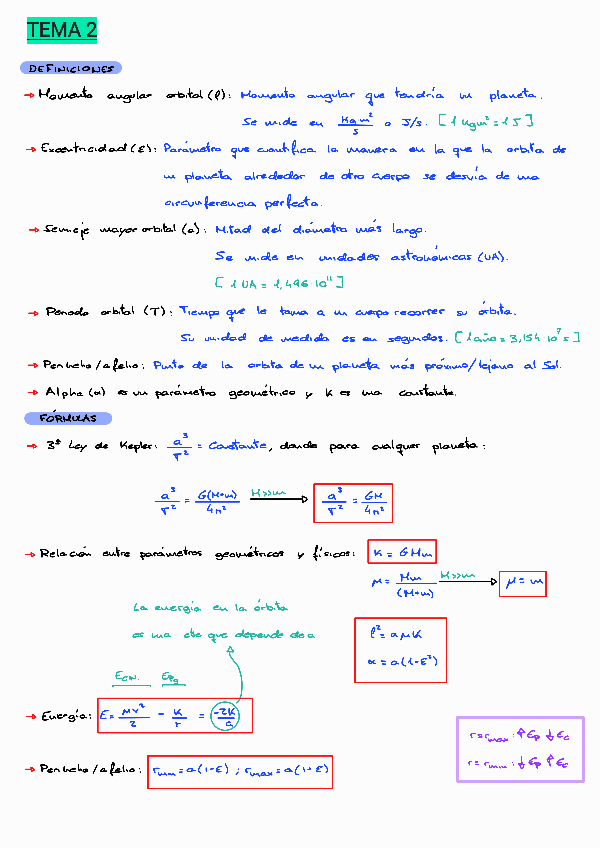 TEMA 2
DEFINICIONES
→ Momento angular orbital (l): Momento angular que tendría un planeta.
Se mide en Kg·m²/s o J/s. [1 Kgm² = 1 J]
→ Excentricidad (ε): Parámetro que cuantifica la manera en la que la órbita de
un planeta alrededor de otro cuerpo se desvía de una
circunferencia perfecta.
→ Semieje mayor orbital (a): Mitad del diámetro más largo.
Se mide en unidades astronómicas (UA).
[1 UA = 1,496·10¹¹]
→ Periodo orbital (T): Tiempo que le toma a un cuerpo recorrer su órbita.
Su unidad de medida es en segundos. [1 año = 3,154·10⁷ s]
→ Perihelio/afelio: Punto de la órbita de un planeta más próximo/lejano al Sol.
→ Alpha (α) es un parámetro geométrico y K es una constante.
FÓRMULAS
→ 3ª Ley de Kepler: a³/T² = Constante, dando para cualquier planeta:
a³/T² = G(M+m)/4π² M>>m → a³/T² = GM/4π²
→ Relación entre parámetros geométricos y físicos: K = GMm
μ = Mm/(M+m) M>>m → μ = m
La energía en la órbita
es una cte que depende de a
l² = αμK
α = a(1-ε²)
Ecin. Epg
→ Energía: E = μv²/2 - K/r = -2K/a
r = rmax: ↑Ep ↓Ec
r = rmin: ↓Ep ↑Ec
→ Perihelio/afelio: rmin = a(1-ε); rmax = a(1+ε)